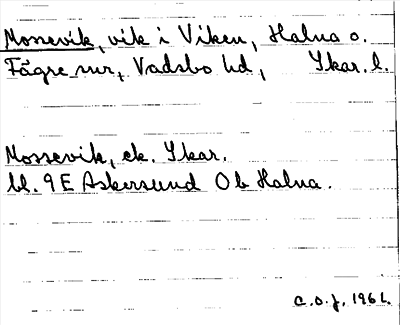 Mossevik, vik i Viken, Halna o.
Fägre snr, Vadsbo hd, Skar. l.
Mossevik, ek. Skar.
bl. 9 E Askersund Ob Halna.
C.O.J. 1961.